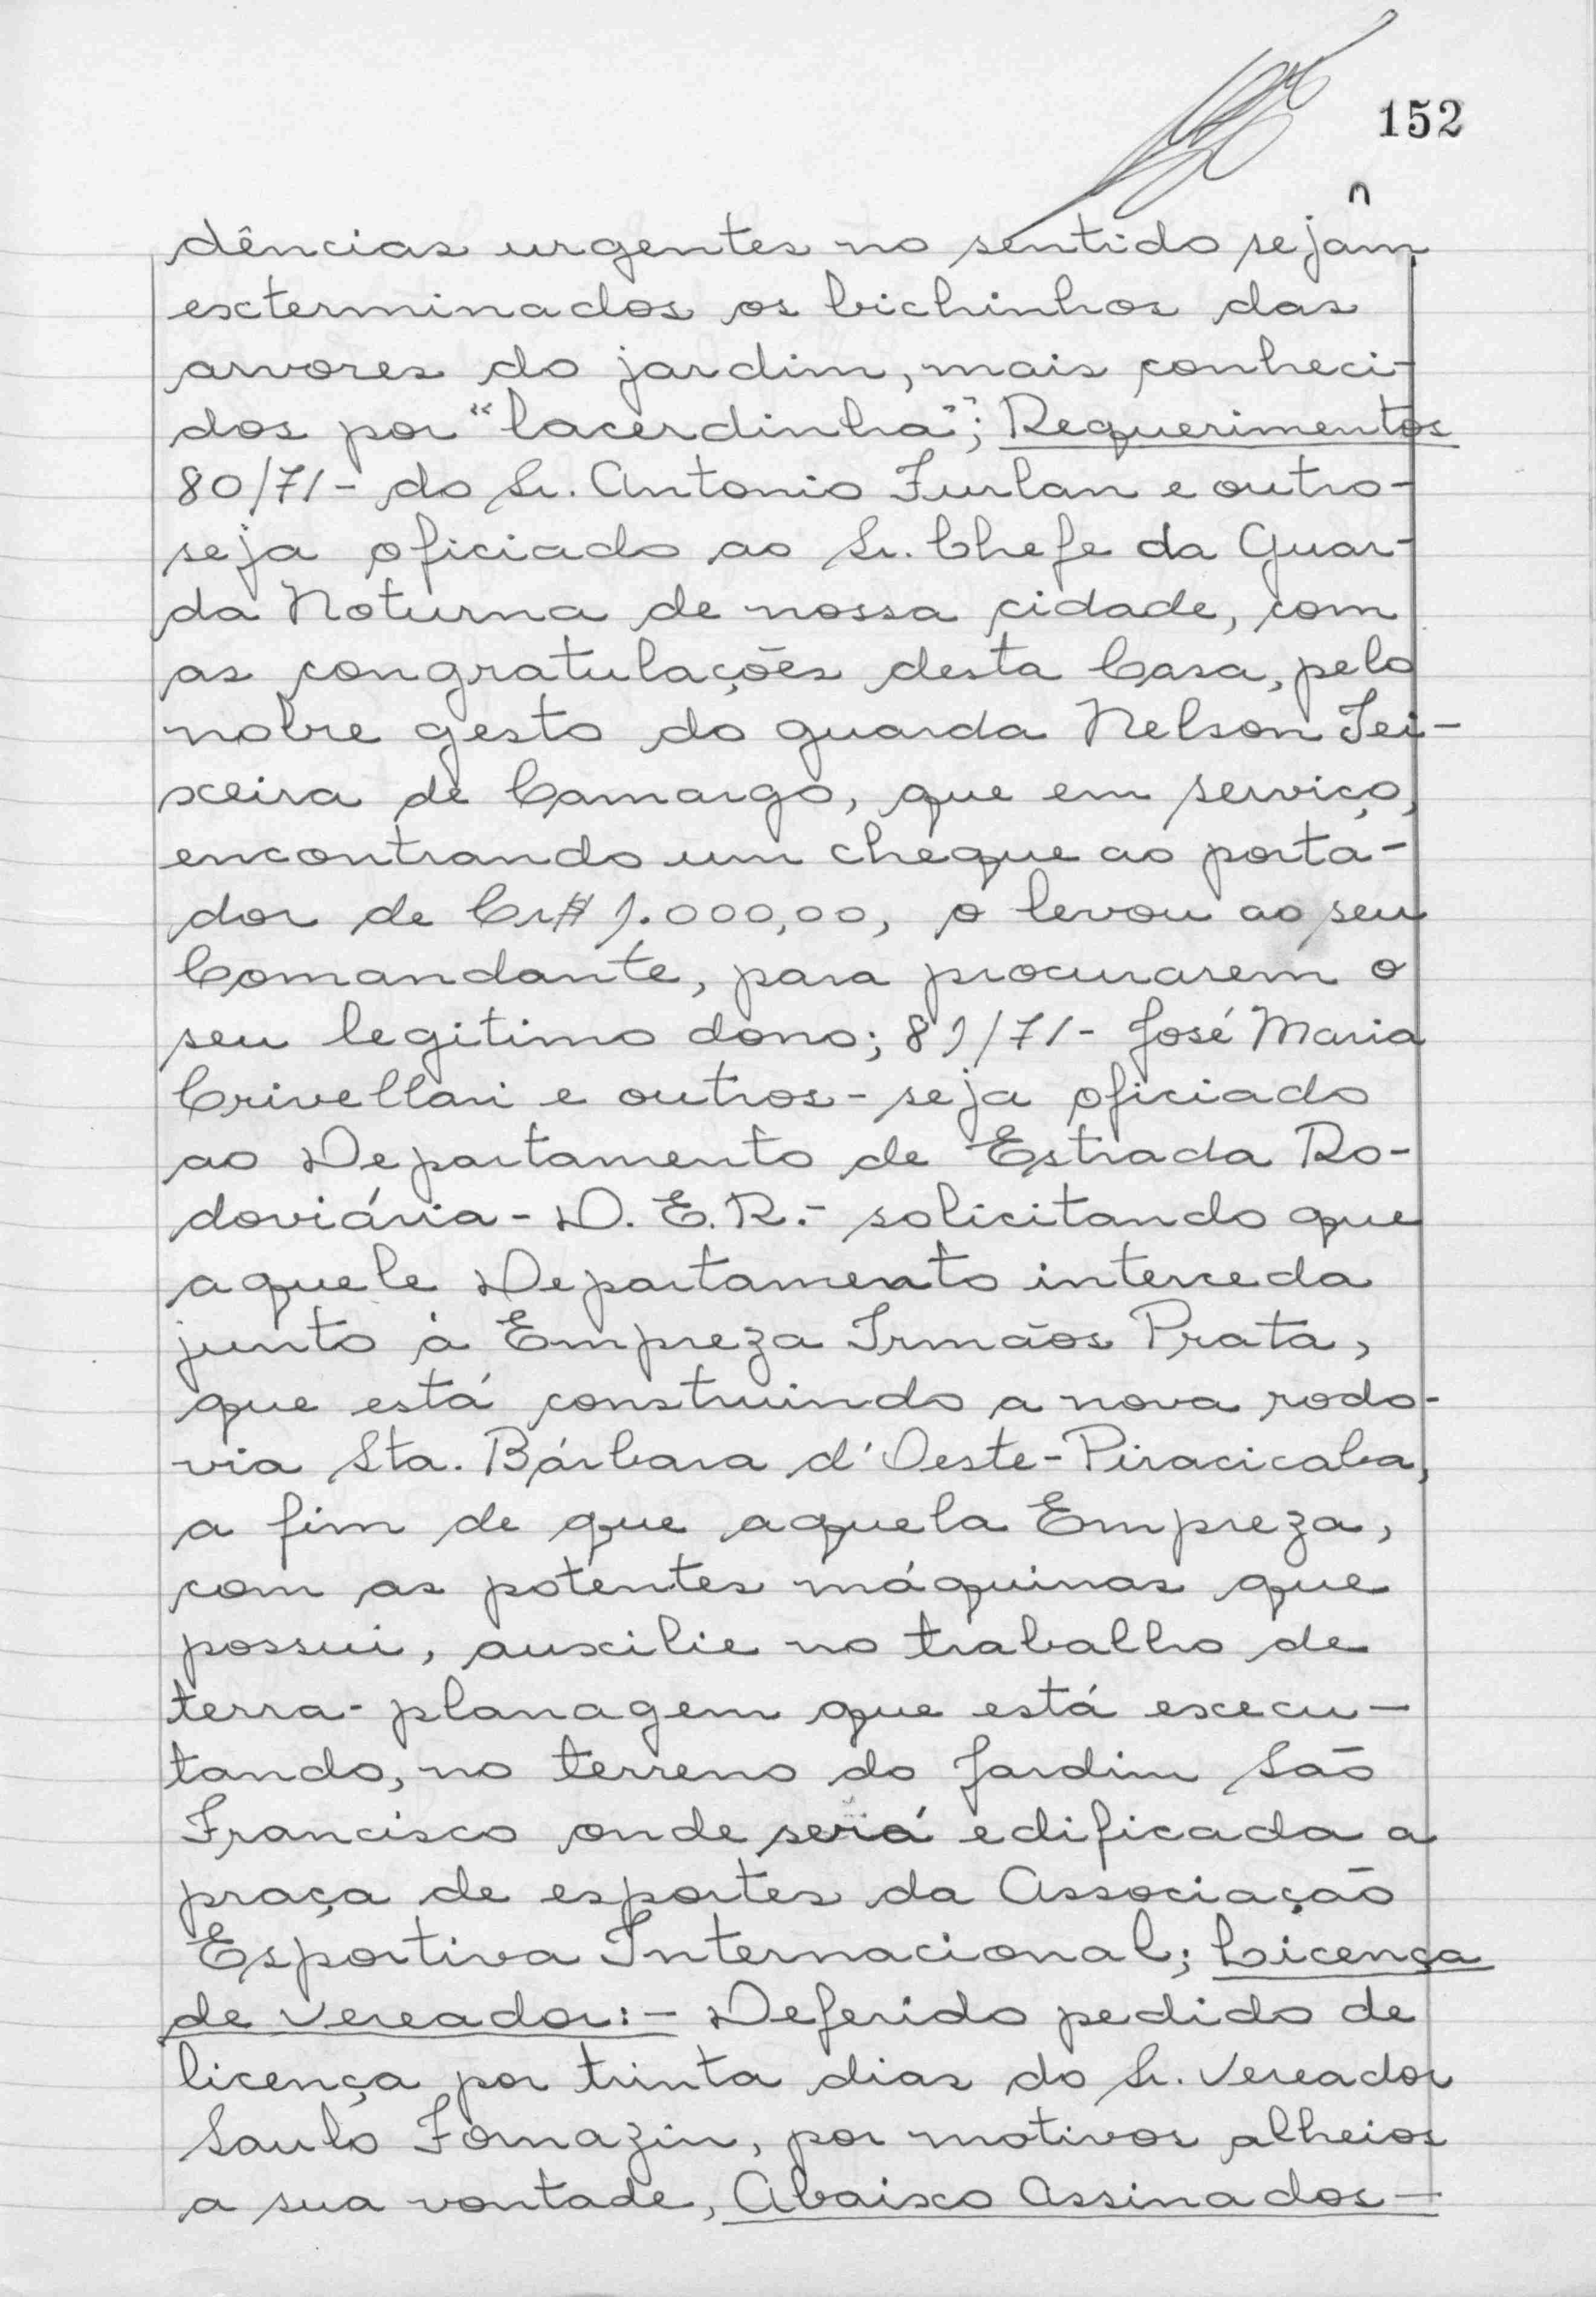 152
dências urgentes no sentido sejam
exterminados os bichinhos das
arvores do jardim, mais conheci-
dos por "lacerdinha"; Requerimentos
80/71 - do Sr. Antonio Furlan e outro-
seja oficiado ao Sr. Chefe da Guar-
da Noturna de nossa cidade, com
as congratulações desta Casa, pelo
nobre gesto do guarda Nelson Tei-
xeira de Camargo, que em serviço,
encontrando um cheque ao porta-
dor de Cr$ 1.000,00, o levou ao seu
Comandante, para procurarem o
seu legitimo dono; 81/71 - José Maria
Crivellari e outros - seja oficiado
ao Departamento de Estrada Ro-
doviária - D.E.R. - solicitando que
aquele Departamento interceda
junto à Empreza Irmãos Prata,
que está construindo a nova rodo-
via Sta. Bárbara d'Oeste-Piracicaba,
a fim de que aquela Empreza,
com as potentes máquinas que
possui, auxilie no trabalho de
terra-planagem que está execu-
tando, no terreno do Jardim São
Francisco onde será edificada a
praça de esportes da Associação
Esportiva Internacional; Licença
de Vereador:- Deferido pedido de
licença por trinta dias do Sr. Vereador
Saulo Fornazin, por motivos alheios
a sua vontade, Abaixo Assinados -